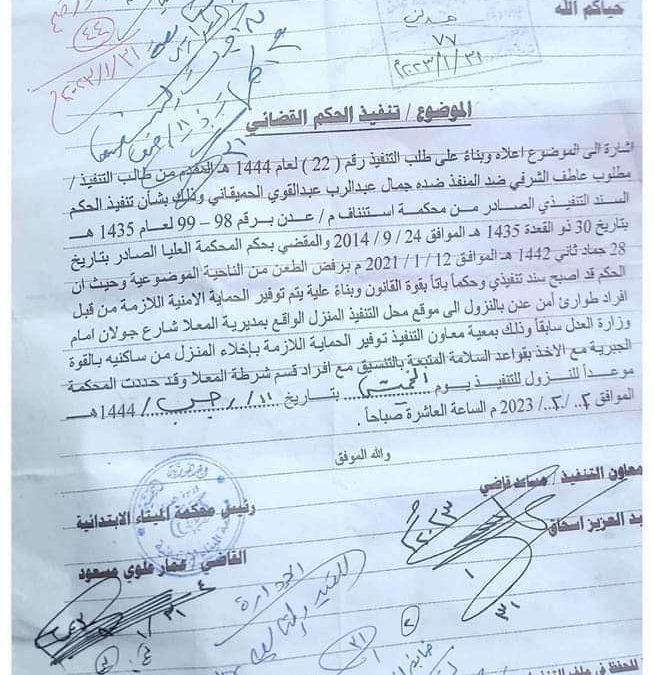 حياكم الله
عدني
٧٧
٢٠٢٣/١/٣١م
٤٤
٢٠٢٣/١/٣١
الموضوع / تنفيذ الحكم القضائي
اشارة الى الموضوع اعلاه وبناءً على طلب التنفيذ رقم ( 22 ) لعام 1444 هـ المقدم من طالب التنفيذ /
مطلوب عاطف الشرفي ضد المنفذ ضده جمال عبدالرب عبدالقوي الحميقاني وذلك بشأن تنفيذ الحكم
السند التنفيذي الصادر من محكمة استئناف م / عدن برقم 98 – 99 لعام 1435 هـ
بتاريخ 30 ذو القعدة 1435 هـ الموافق 24 / 9 / 2014 والمقضي بحكم المحكمة العليا الصادر بتاريخ
28 جماد ثاني 1442 هـ الموافق 12 / 1 / 2021 م برفض الطعن من الناحية الموضوعية وحيث ان
الحكم قد اصبح سند تنفيذي وحكماً باتاً بقوة القانون وبناءً علية يتم توفير الحماية الامنية اللازمة من قبل
افراد طوارئ أمن عدن بالنزول الى موقع محل التنفيذ المنزل الواقع بمديرية المعلا شارع جولان امام
وزارة العدل سابقاً وذلك بمعية معاون التنفيذ توفير الحماية اللازمة بإخلاء المنزل من ساكنيه بالقوة
الجبرية مع الاخذ بقواعد السلامة المتبعة بالتنسيق مع افراد قسم شرطة المعلا وقد حددت المحكمة
موعداً للنزول للتنفيذ يوم الخميس بتاريخ ١١ / رجب / 1444هـ
الموافق ٢ / ٢ / 2023 م الساعة العاشرة صباحاً .
والله الموفق
معاون التنفيذ / مساعد قاضي
رئيس محكمة الميناء الابتدائية
بد العزيز اسحاق
القاضي / عمار علوي مسعود
للحفظ في ملف التنفيذ